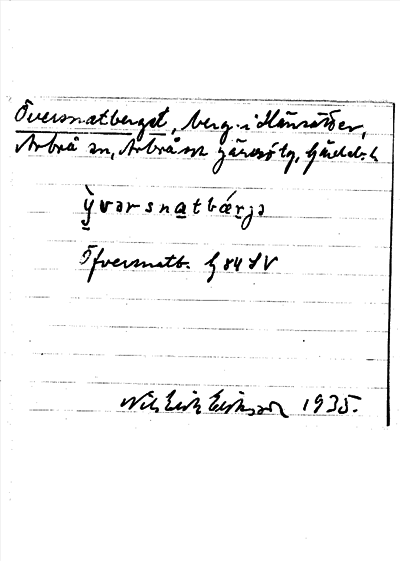 Översnatberget, berg i Hänsätter,
Arbrå sn, Arbrå och Järvsö tg, Gävleb. l.
ỳvərsnatbǽrjə
Öfversnatb. G 84 SV
Nils Erik Eriksson 1935.